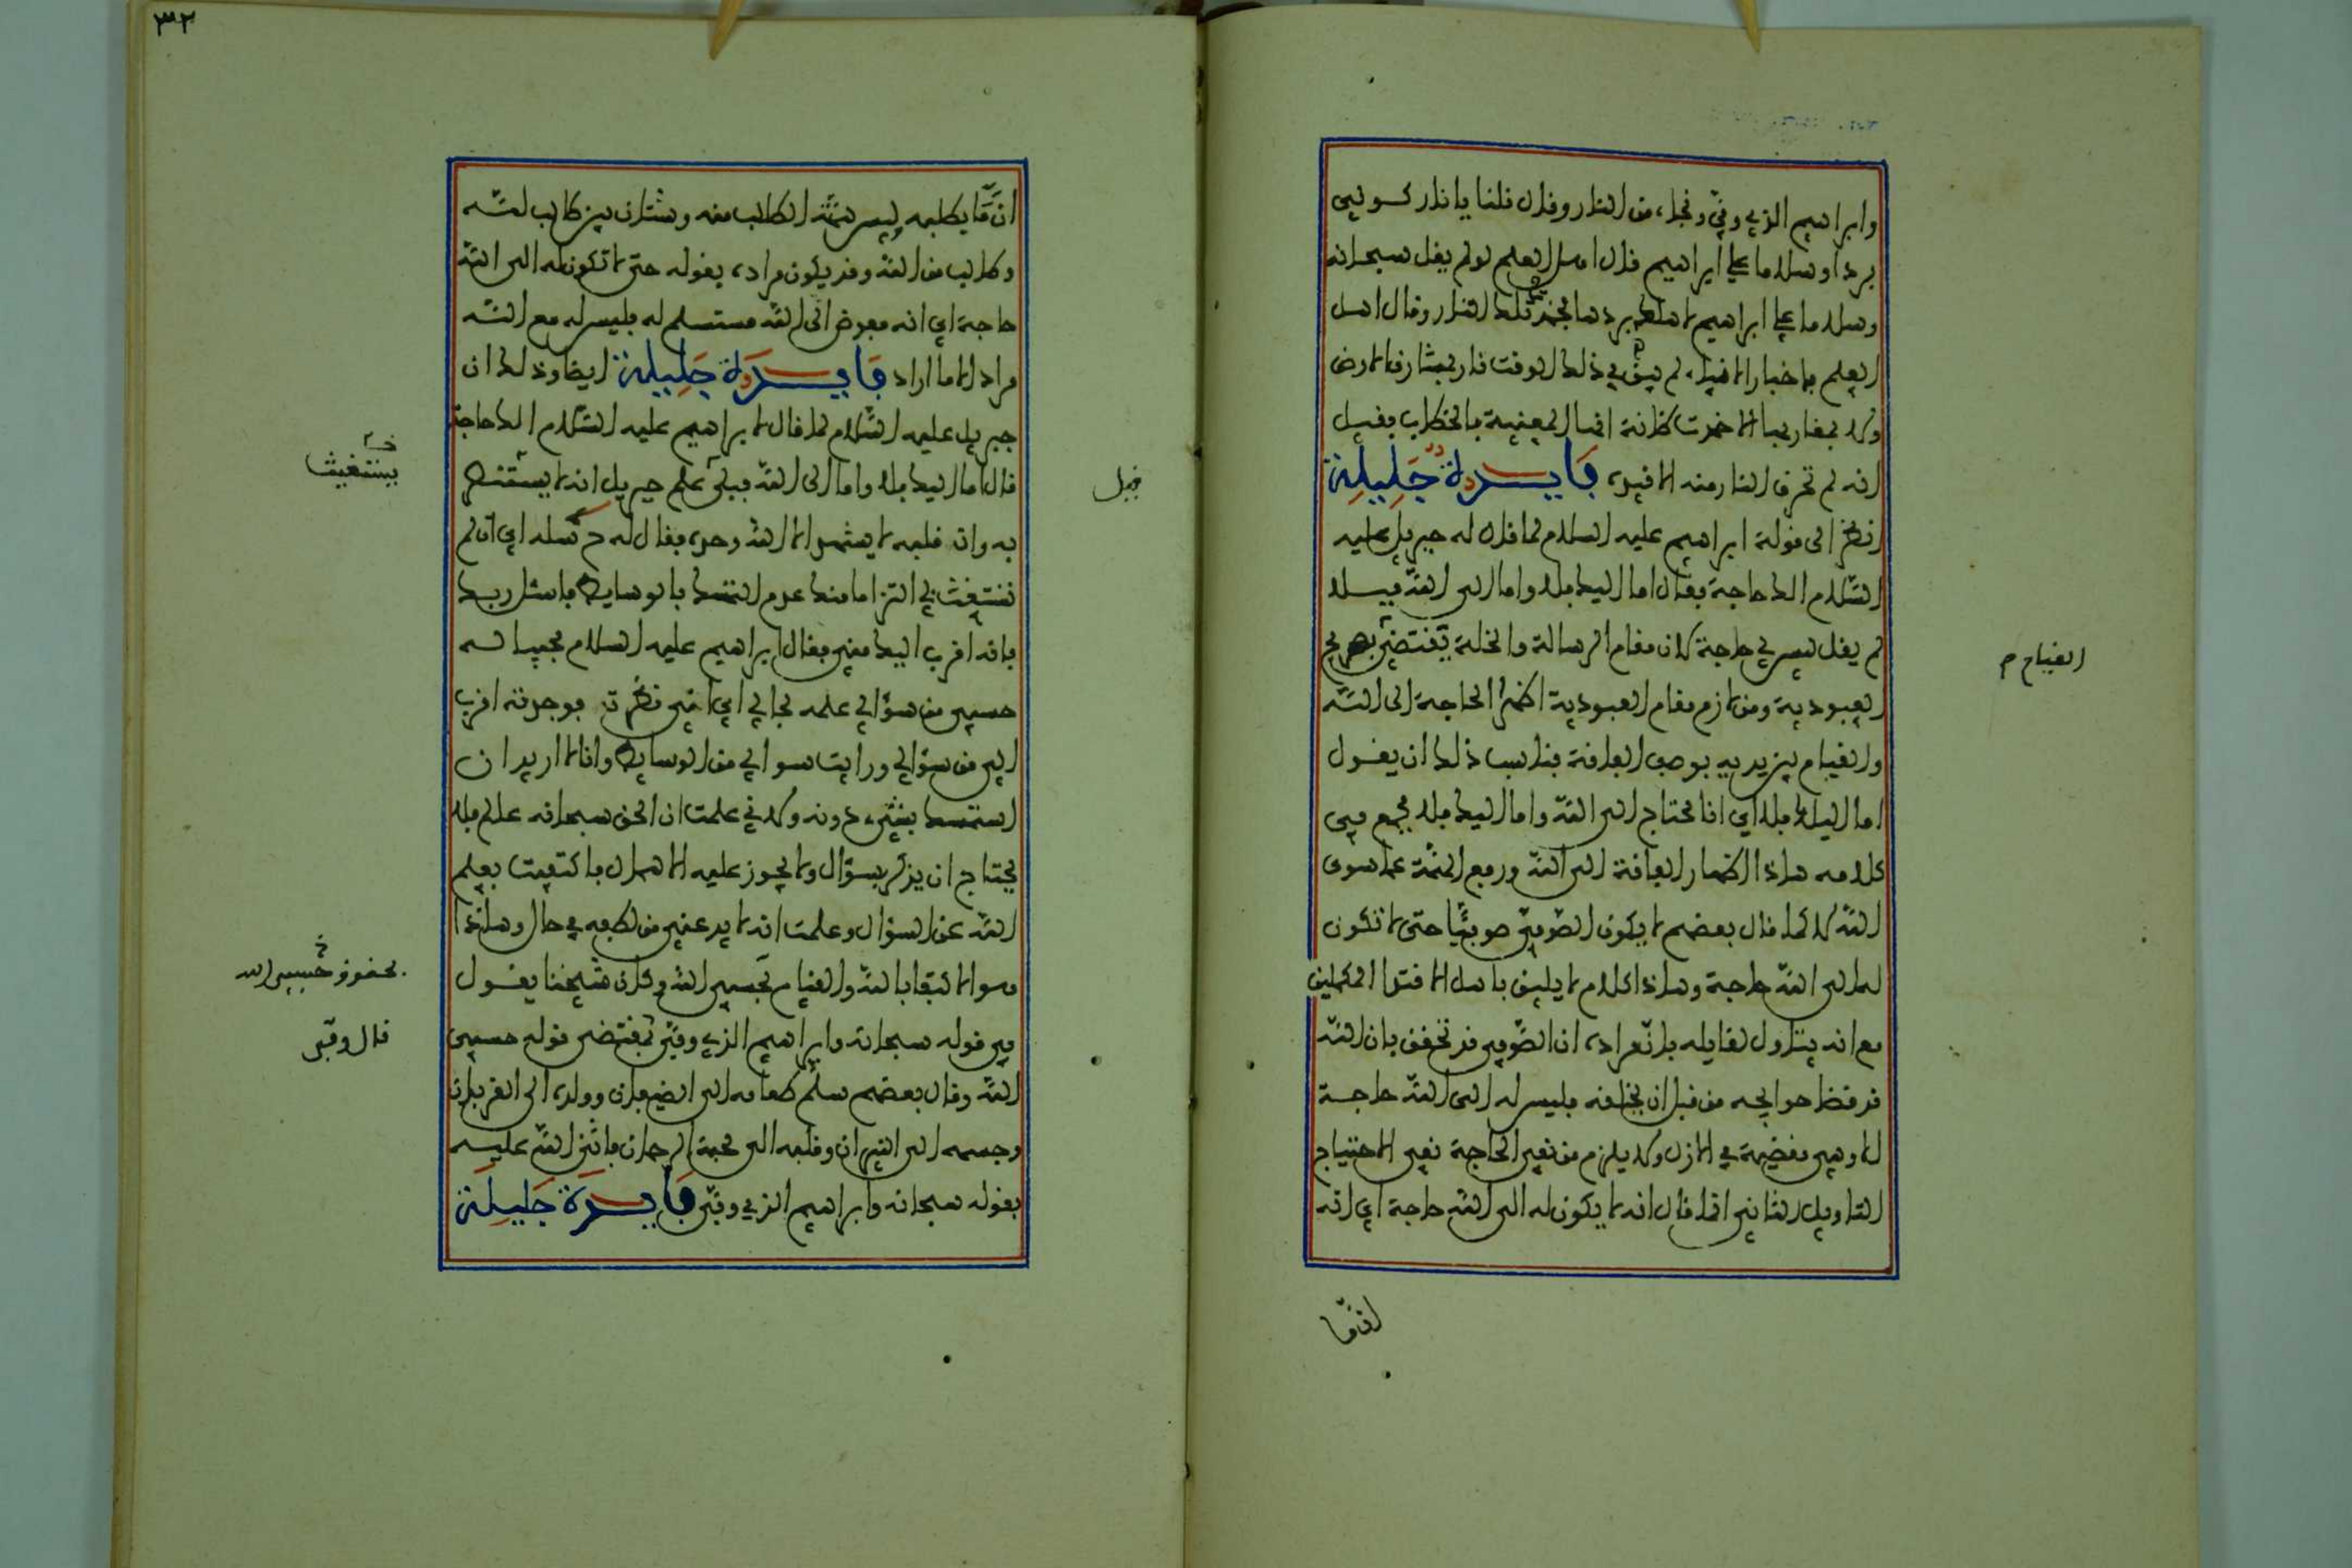 وابراهيم الذي وفّى ونجاه من النار وقال قلنا يا نار كوني
بردا وسلاما على ابراهيم قال اهل العلم لو لم يقل سبحانه
وسلاما على ابراهيم لاهلكه بردها فخمدت تلك النار وقال اهل
العلم باخبار الانبياء لم يبق في ذلك الوقت نار بمشارق الارض
ولا بمغاربها الا خمدت ظانة انها المعنية بالخطاب فقيل
انه لم تحرق النار منه الا قيده فايدة جليلة
انظر الى قولة ابراهيم عليه السلام لما قال له جبريل عليه
السّلام الك حاجة فقال اما اليك فلا واما الى اللّه فبلى
لم يقل ليس لي حاجة لان مقام الرسالة والخلة يقتضي
العبودية ومن لازم مقام العبودية اظهار الحاجة الى اللّه
والقيام بين يديه بوصف الفاقة فناسب ذلك ان يقول
اما اليك فلا اي انا محتاج الى اللّه واما اليك فلا فجمع في
كلامه هاذا اظهار الفاقة الى اللّه ورفع الهمّة عما سوى
اللّه لا كما قال بعضهم لا يكون الصّوفي صوفيّا حتى لا تكون
له الى اللّه حاجة وهاذا كلام لا يليق باهل الاقتدا المكملين
مع انه يتاول لقايله بانّ مراده ان الصّوفي قد تحقق بان اللّه
قد قضا حوايجه من قبل ان يخلقه فليس له الى اللّه حاجة
الا وهي مقضية في الازل ولا يلزم من نفي الحاجة نفي الاحتياج
التاويل الثاني انما قال انه لا يكون له الى اللّه حاجة اي انه
القيام م
انّما
٣٢
انّما يطلبه وليس همّة الطالب منه وشتان بين طالب للّه
وطالب من اللّه وقد يكون مراده بقوله حتى لا تكون له الى اللّه
حاجة اي انه مفوض الى اللّه مستسلم له فليس له مع اللّه
مراد الا ما اراد فايدة جليلة ايضا وذلك ان
جبريل عليه السّلام لما قال لابراهيم عليه السّلام الك حاجة
قال اما اليك فلا واما الى اللّه فبلى علم جبريل انه لا يستنصر
به وان قلبه لا يشهد الا اللّه وحده فقال له ح سله اي ان لم
تستغث بي التزاما منك عدم التمسك بالوسايط فاسئل ربك
فانه اقرب اليك مني فقال ابراهيم عليه السلام مجيبا له
حسبي من سؤالي علمه بحالي اي اني نظرت فوجدته اقرب
الي من سؤالي ورايت سوالي من الوسايط وانا لا اريد ان
استمسك بشيء دونه ولاني علمت ان الحق سبحانه عالم فلا
يحتاج ان يذكر بسؤال ولا يجوز عليه الاهمال فاكتفيت بعلم
اللّه عن السؤال وعلمت انه لا يدعني من لطفه في حال وهاذا
هو الاكتفا باللّه والقيام بحسبي اللّه وكان شيخنا يقول
في قوله سبحانه وابراهيم الذي وفّى بمقتضى قوله حسبي
اللّه وقال بعضهم سلّم طعامه الى الضيفان وولده الى القربان
وجسمه الى النيران وقلبه الى محبة الرحمان فاثنى اللّه عليه
بقوله سبحانه وابراهيم الذي وفّى فايدة جليلة
يستغيث
بحقوق حسبي الله
قال وفّى